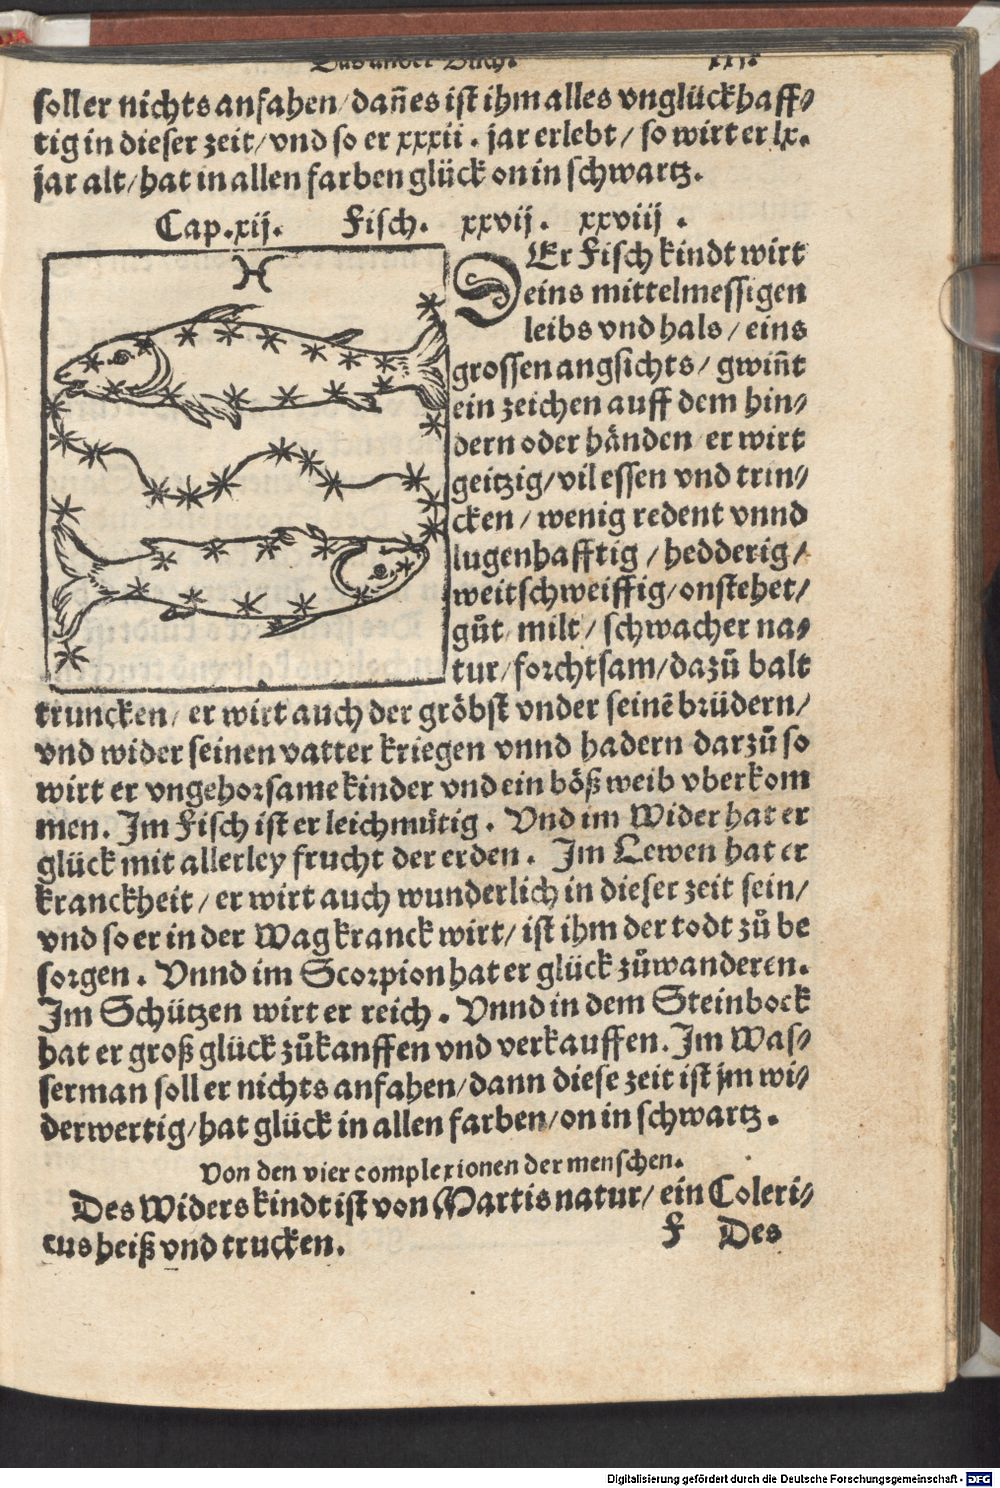 soll er nichts anfahen/ dañ es ist ihm alles vnglückhaff⸗
tig in dieser zeit/ vnd so er xxxii. jar erlebt/ so wirt er lx.
jar alt/ hat in allen farben glück on in schwartz.
Cap.xij. Fisch. xxvij. xxviij.
DEr Fisch kindt wirt
eins mittelmessigen
leibs vnd hals/ eins
grossen angsichts/ gwiñt
ein zeichen auff dem hin⸗
dern oder hånden/ er wirt
geitzig/ vil essen vnd trin⸗
cken/ wenig redent vnnd
lugenhafftig/ hedderig/
weitschweiffig/ onstehet/
gůt/ milt/ schwacher na⸗
tur/ forchtsam/ dazů balt
truncken/ er wirt auch der gröbst vnder seinẽ brüdern/
vnd wider seinen vatter kriegen vnnd hadern darzů so
wirt er vngehorsame kinder vnd ein böß weib vberkom
men. Im Fisch ist er leichmütig. Vnd im Wider hat er
glück mit allerley frucht der erden. Im Lewen hat er
kranckheit/ er wirt auch wunderlich in dieser zeit sein/
vnd so er in der Wag kranck wirt/ ist ihm der todt zů be
sorgen. Vnnd im Scorpion hat er glück zůwanderen.
Im Schützen wirt er reich. Vnnd in dem Steinbock
hat er groß glück zůkauffen vnd verkauffen. Im Was⸗
serman soll er nichts anfahen/ dann diese zeit ist jm wi⸗
derwertig/ hat glück in allen farben/ on in schwartz.
Von den vier complexionen der menschen.
Des Widers kindt ist von Martis natur/ ein Coleri⸗
cus heiß vnd trucken.
F Des
Digitalisierung gefördert durch die Deutsche Forschungsgemeinschaft - DFG